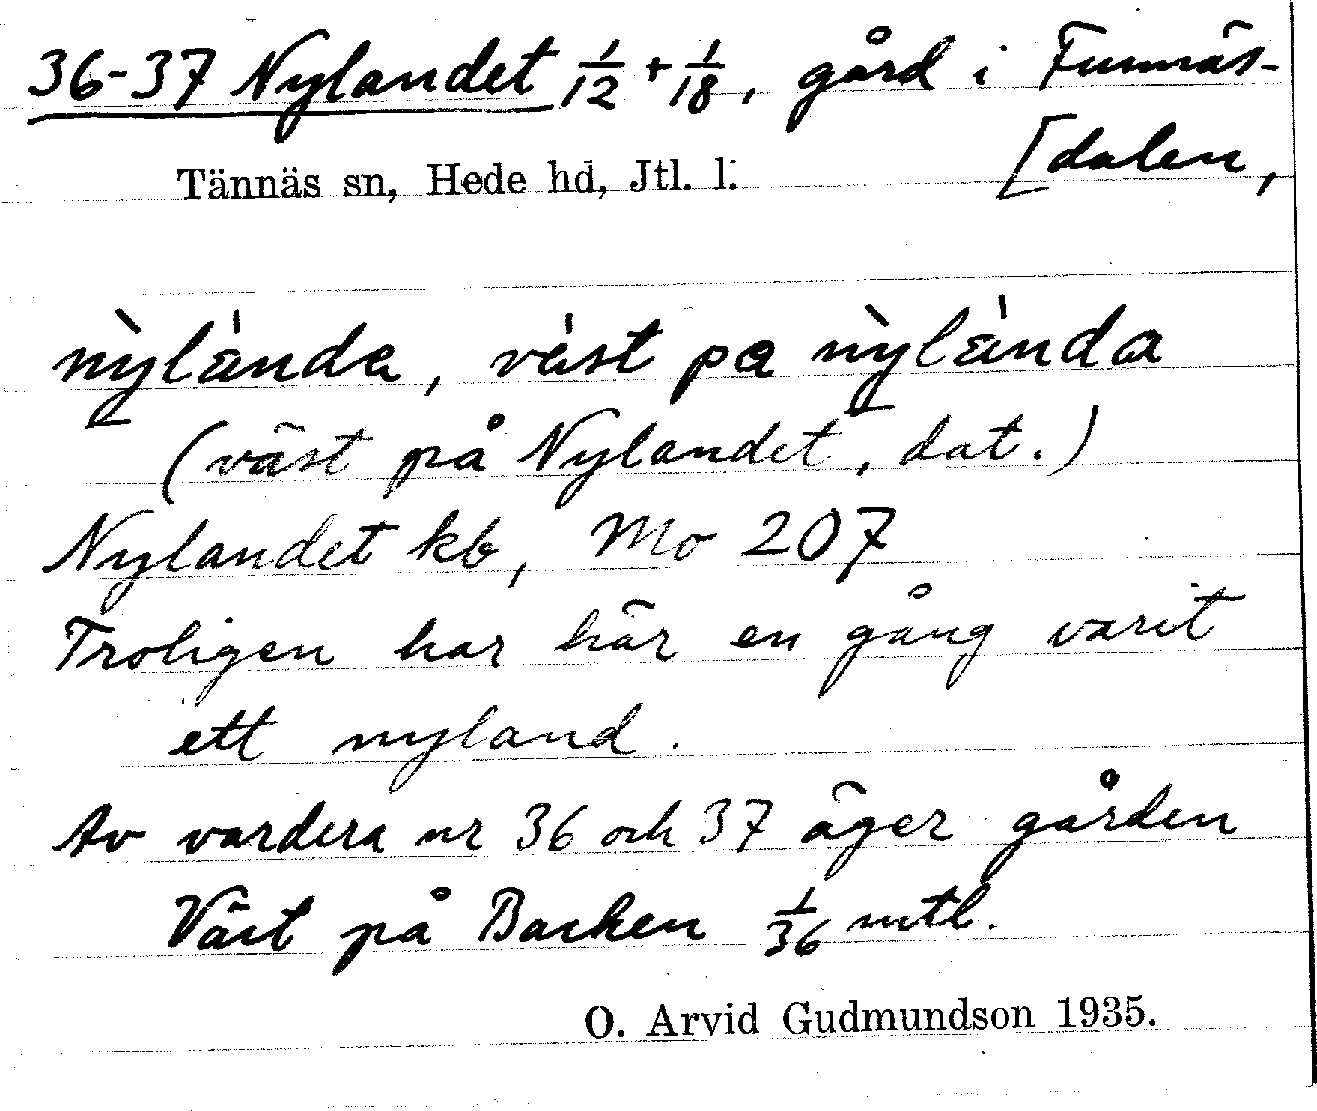 36-37 Nylandet 1/12 + 1/18, gård i Funnäs-
[dalen,
Tännäs sn, Hede hd, Jtl. l.
nỳlánda, vást pa nỳlánda
(väst på Nylandet, dat.)
Nylandet kb, Mo 207
Troligen har här en gång varit
ett nyland.
Av vardera nr 36 och 37 äger gården
Väst på Backen 1/36 mtl.
O. Arvid Gudmundson 1935.